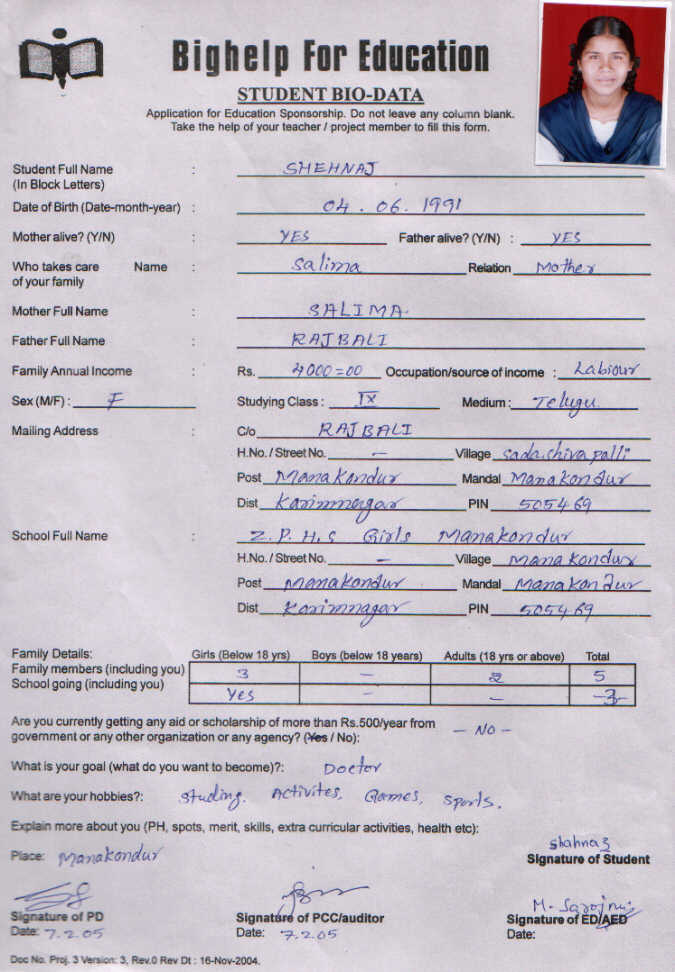 Bighelp For Education
STUDENT BIO-DATA
Application for Education Sponsorship. Do not leave any column blank.
Take the help of your teacher / project member to fill this form.
Student Full Name : SHEHNAJ
(In Block Letters)
Date of Birth (Date-month-year) : 04 . 06 . 1991
Mother alive? (Y/N) : YES Father alive? (Y/N) : YES
Who takes care Name : Salima Relation Mother
of your family
Mother Full Name : SALIMA
Father Full Name : RAJBALI
Family Annual Income : Rs. 4000=00 Occupation/source of income : Labiour
Sex (M/F) : F Studying Class : IX Medium : Telugu.
Mailing Address : C/o RAJBALI
H.No. / Street No. - Village sadashiva palli
Post Manakondur Mandal Manakondur
Dist Karimnagar PIN 505469
School Full Name : Z.P.H.S Girls Manakondur
H.No. / Street No. - Village Manakondur
Post Manakondur Mandal Manakondur
Dist Karimnagar PIN 505469
Family Details: Girls (Below 18 yrs) Boys (below 18 years) Adults (18 yrs or above) Total
Family members (including you) 3 - 2 5
School going (including you) Yes - - -3-
Are you currently getting any aid or scholarship of more than Rs.500/year from
government or any other organization or any agency? (Yes / No): - NO -
What is your goal (what do you want to become)?: Doctor
What are your hobbies?: studing. Activites, Games, sports.
Explain more about you (PH, spots, merit, skills, extra curricular activities, health etc):
shahnaz
Place: Manakondur Signature of Student
M. Sarojni
Signature of PD Signature of PCC/auditor Signature of ED/AED
Date: 7.2.05 Date: 7.2.05 Date:
Doc No. Proj. 3 Version: 3, Rev.0 Rev Dt : 16-Nov-2004.